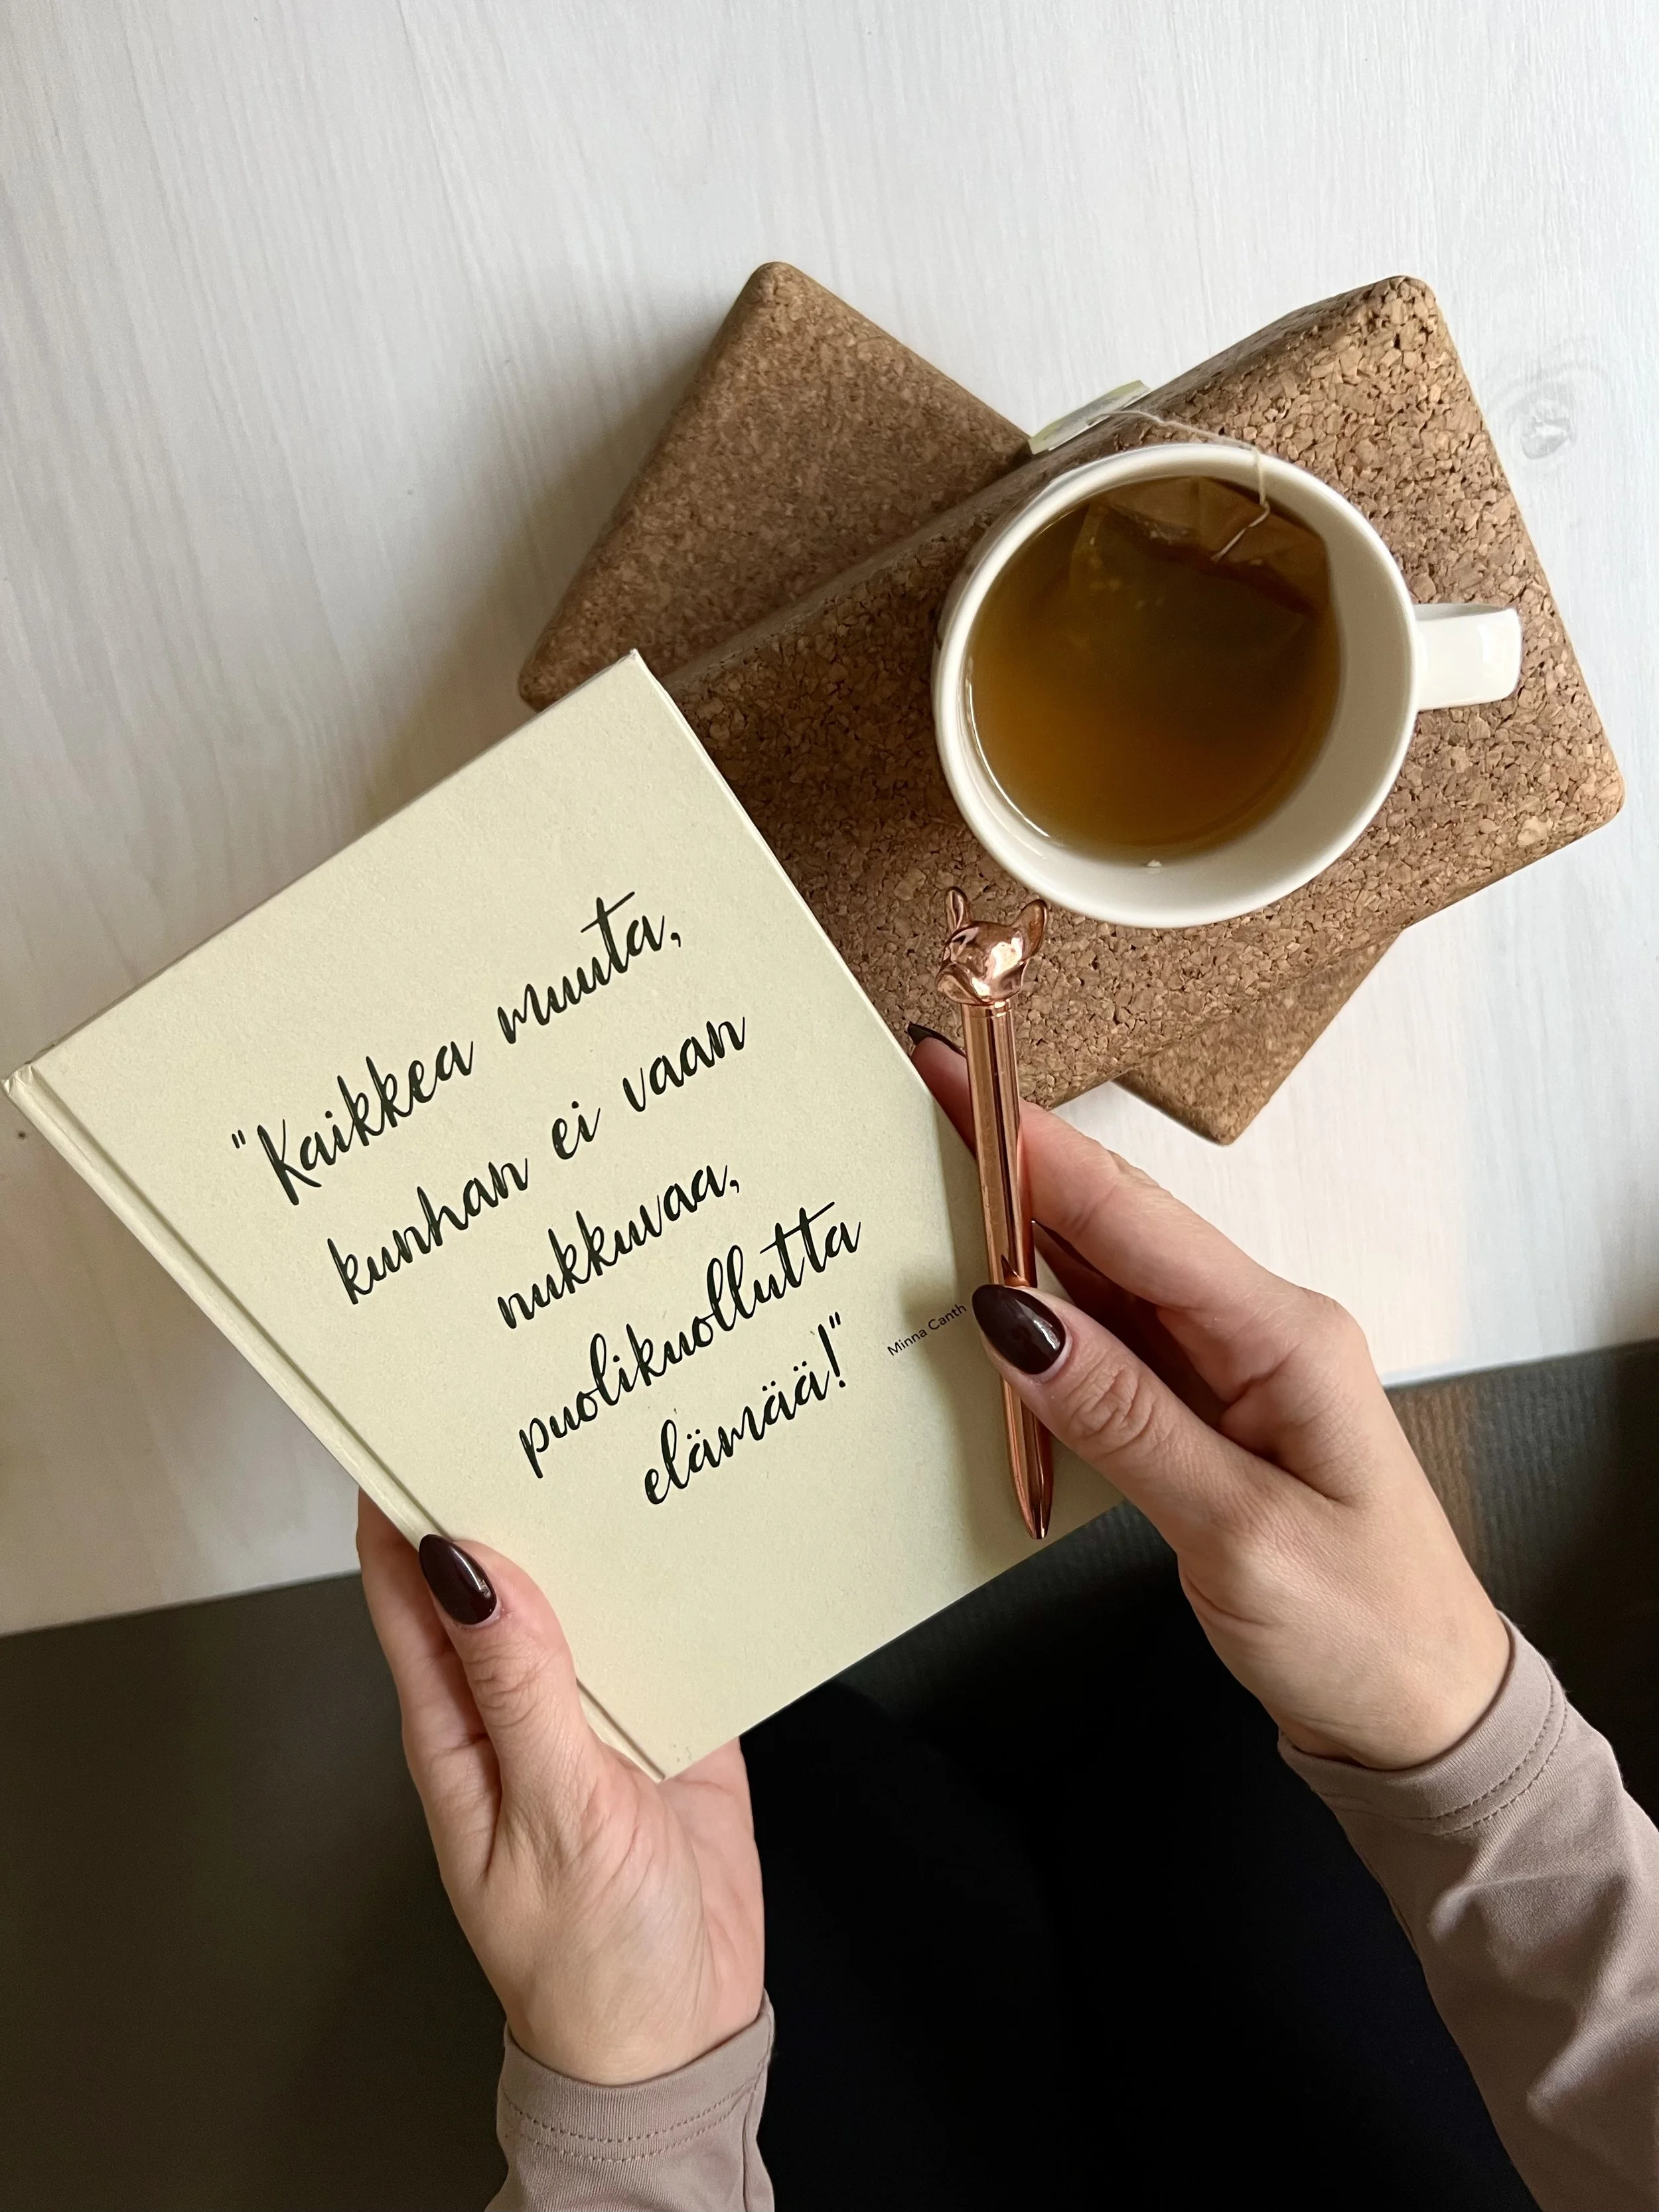 "Kaikkea muuta,
kunhan ei vaan
nukkuvaa,
puolikuollutta
elämää!"
Minna Canth